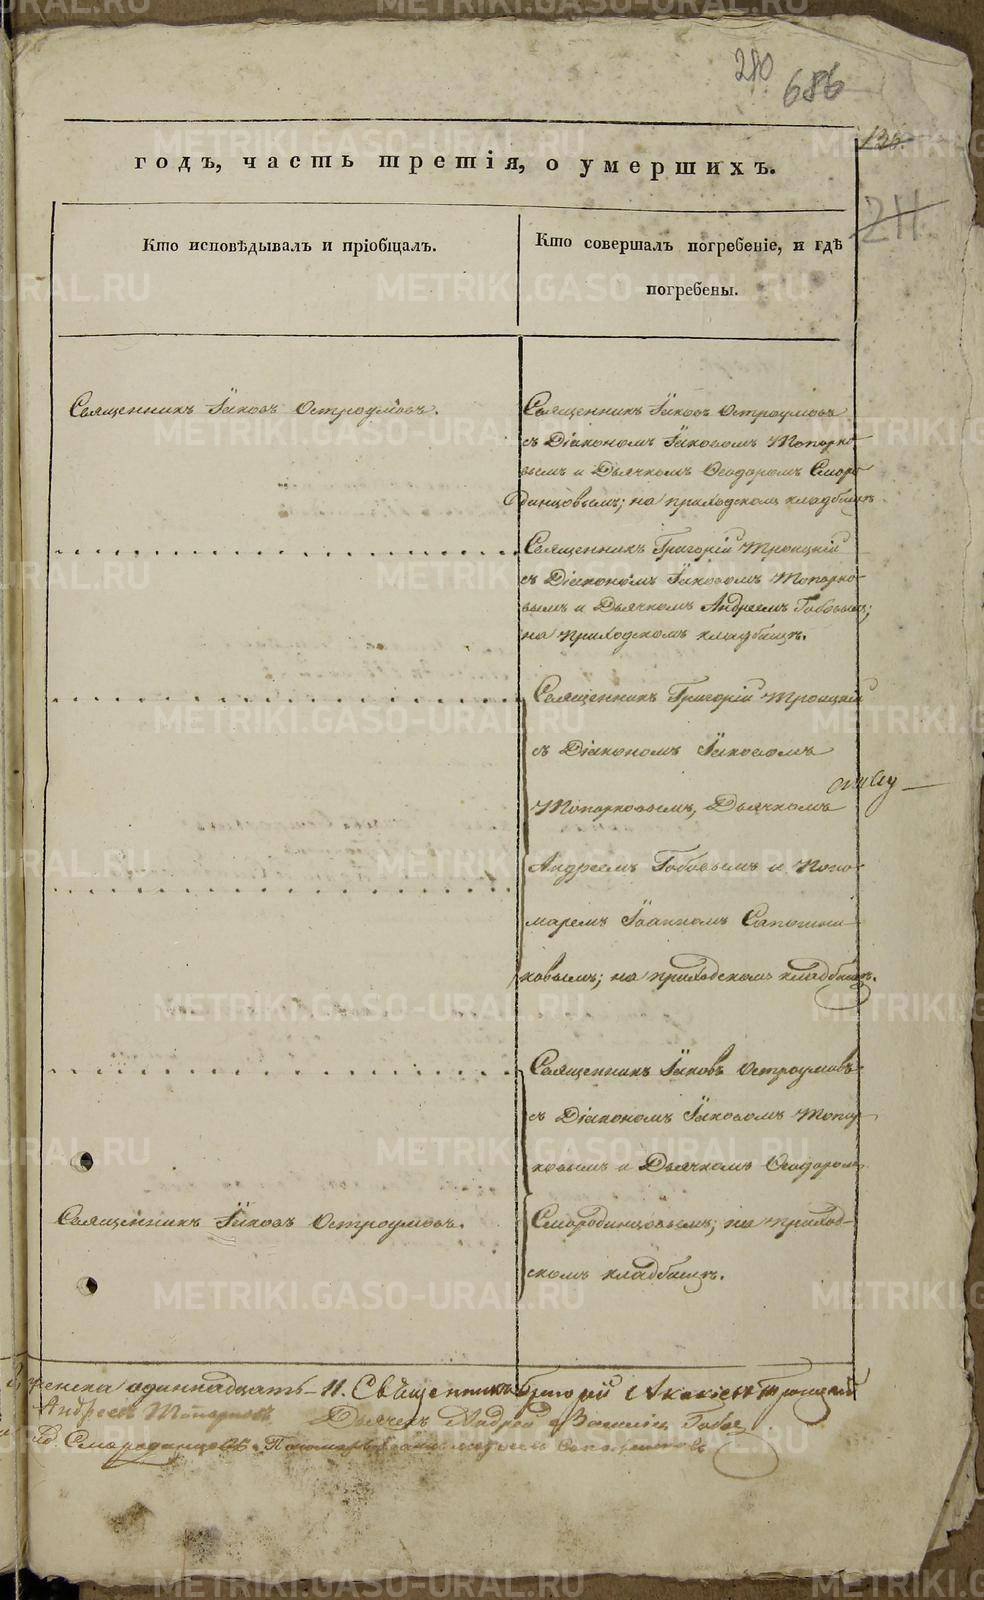 280
686
135
211
годъ, часть третія, о умершихъ.
Кто исповѣдывалъ и пріобщалъ.
Кто совершалъ погребеніе, и гдѣ
погребены.
Священникъ Іаковъ Остроумовъ.
Священникъ Іаковъ Остроумовъ
съ Діакономъ Іаковомъ Топорко-
вымъ и Дьячкомъ Ѳеодоромъ Сморо-
динцовымъ; на приходскомъ кладбищѣ.
Священникъ Григорій Троицкій
съ Діакономъ Іаковомъ Топорко-
вымъ и Дьячкомъ Андреемъ Габовымъ;
на приходскомъ кладбищѣ.
Священникъ Григорій Троицкій
съ Діакономъ Іаковомъ
Топорковымъ, Дьячкомъ
Андреемъ Габовымъ и Поно-
маремъ Іоанномъ Сапожни-
ковымъ; на приходскомъ кладбищѣ.
Священникъ Іаковъ Остроумовъ
съ Діакономъ Іаковомъ Топор-
ковымъ и Дьячкомъ Ѳеодоромъ
Священникъ Іаковъ Остроумовъ.
Смородинцовымъ; на приход-
скомъ кладбищѣ.
женска одиннадцать - 11. Священникъ Григорій Акакіевъ Троицкій
Андреевъ Топорковъ Дьячекъ Андрей Василіи
Смородинцовъ. Пономарь
METRIKI.GASO-URAL.RU